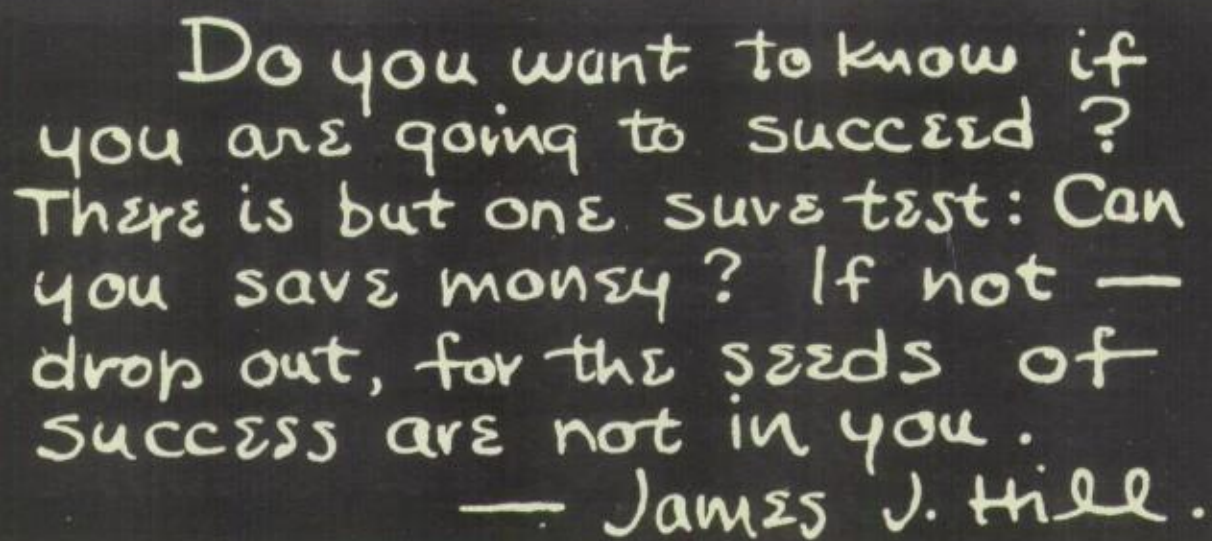 Do you want to know if
you are going to succeed?
There is but one sure test: Can
you save money? If not —
drop out, for the seeds of
success are not in you.
— James J. Hill.